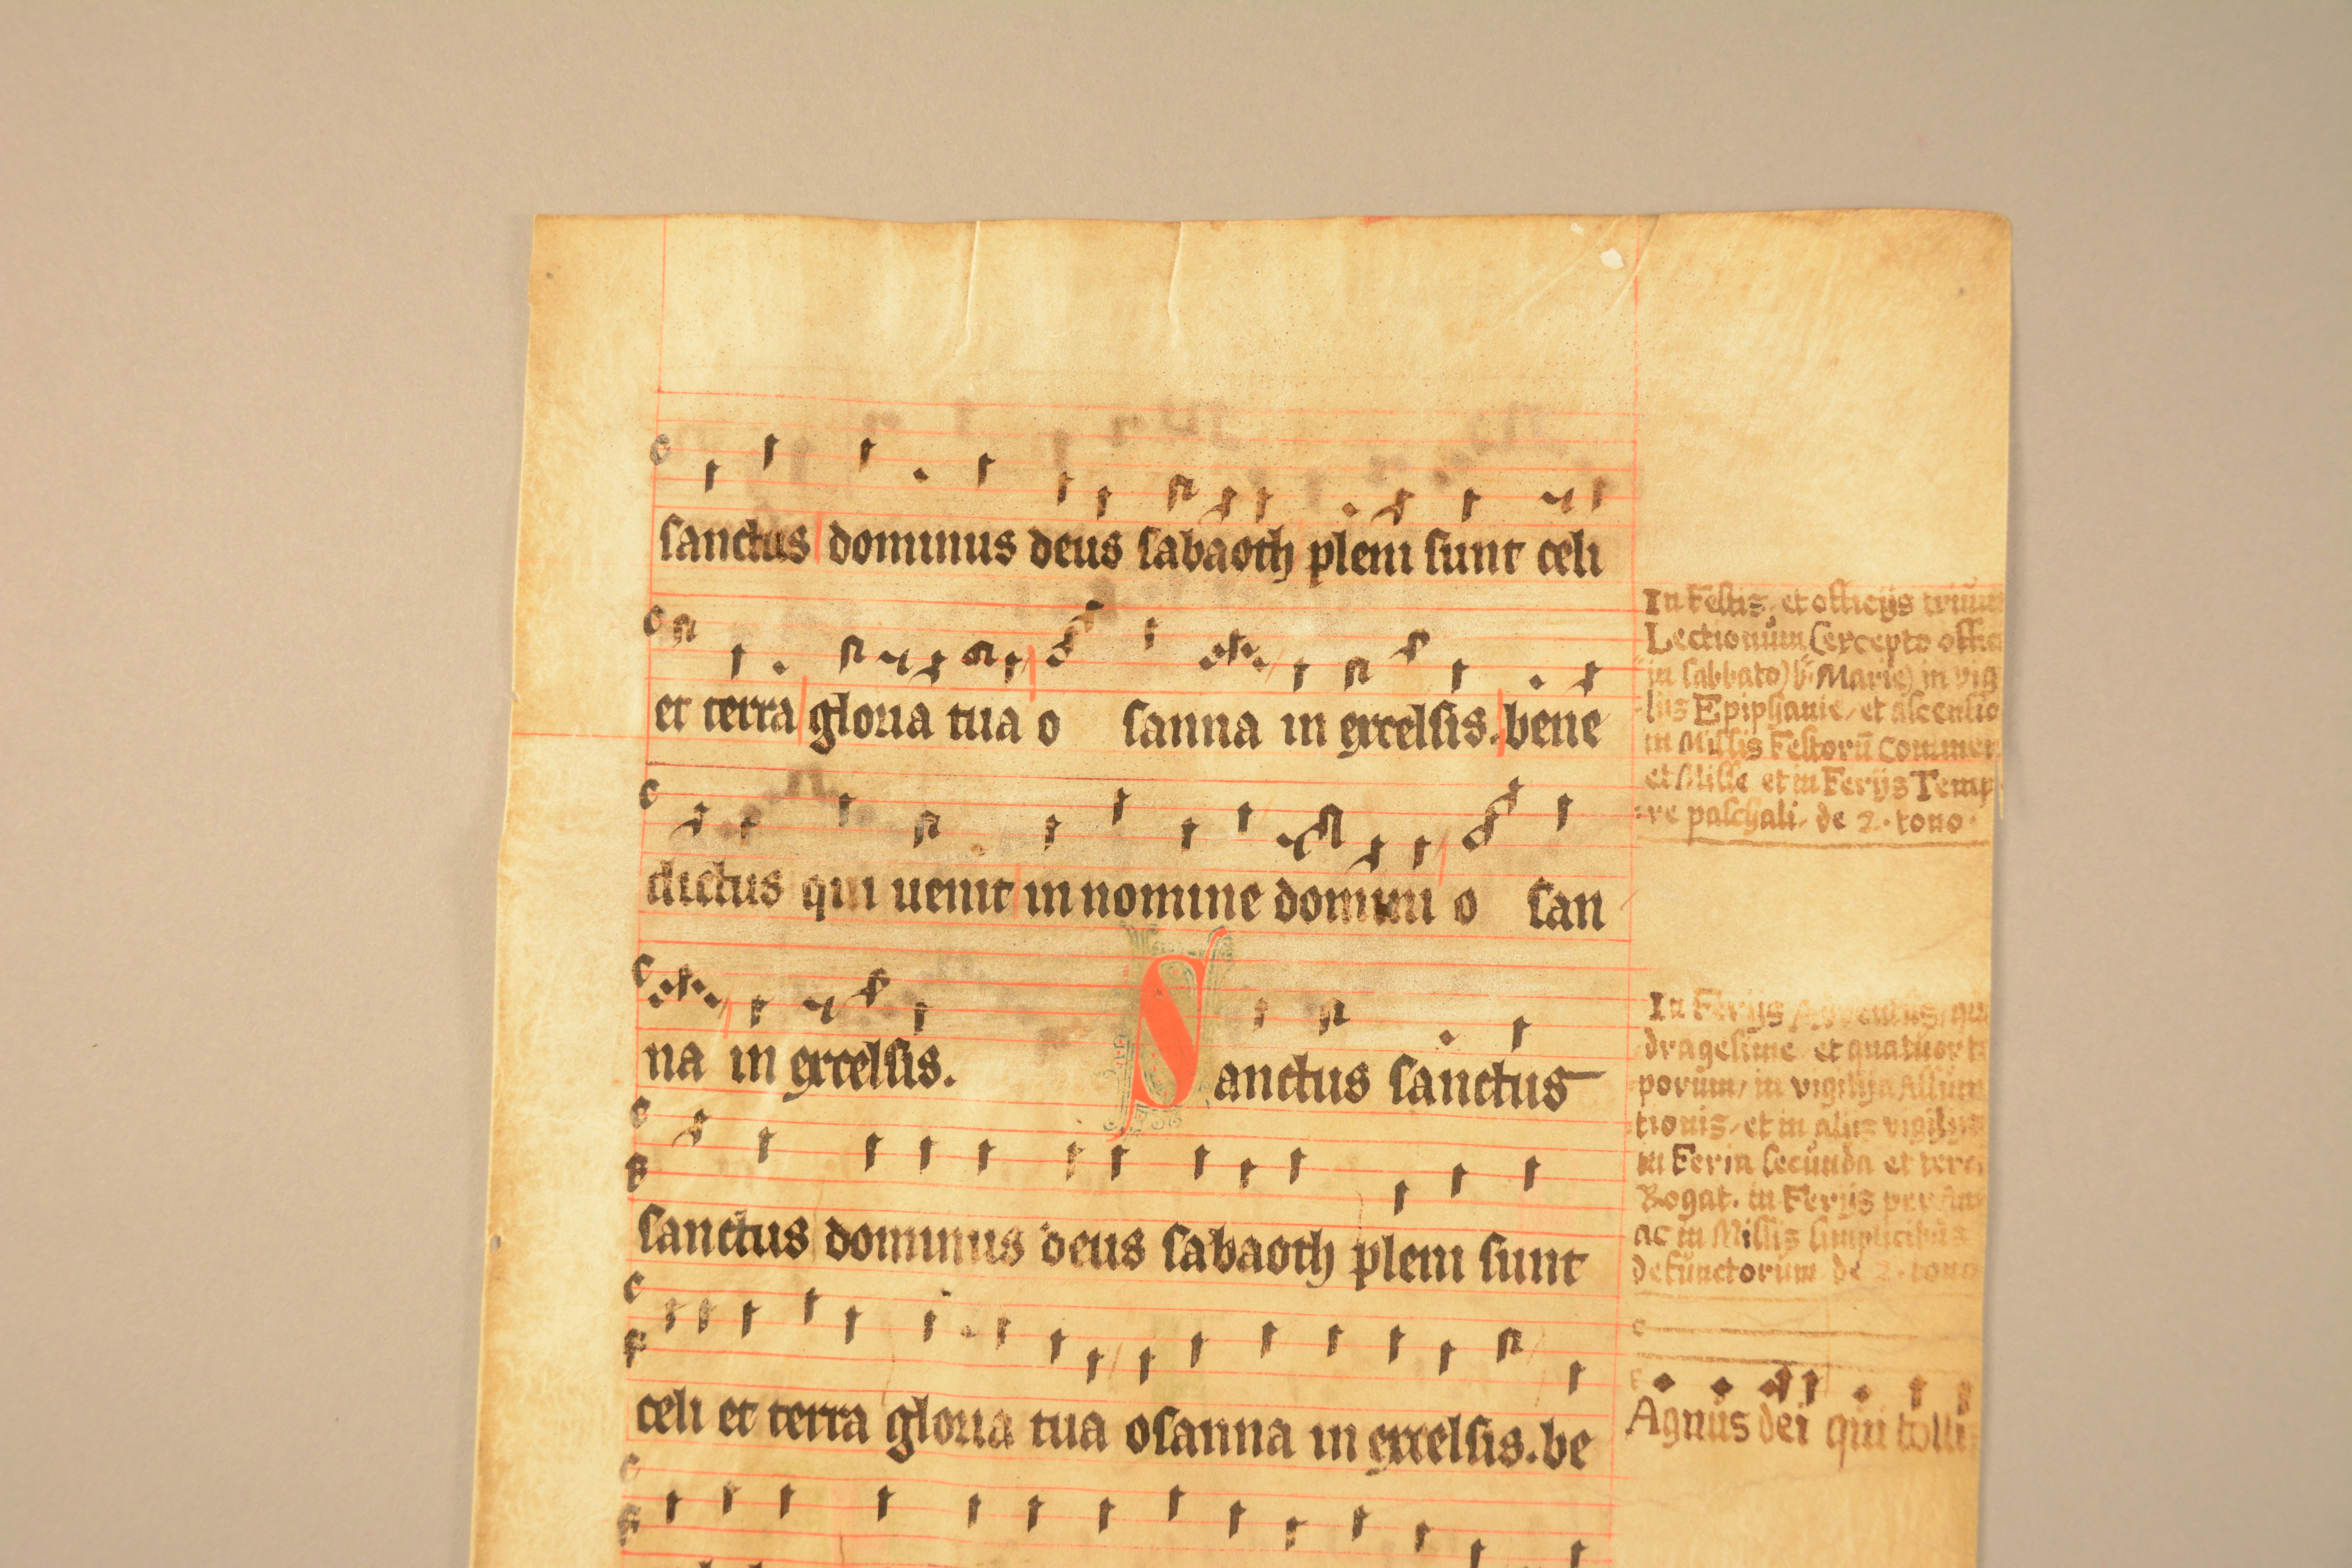 sanctus dominus deus sabaoth pleni sunt celi
et terra gloria tua o sanna in excelsis. bene
dictus qui uenit in nomine domini o san
na in excelsis. Sanctus sanctus
sanctus dominus deus sabaoth pleni sunt
celi et terra gloria tua osanna in excelsis. be
In Festis, et officijs trium
Lectionum (excepto offic
in sabbato) b. Marie) in vig
lijs Epiphanie, et ascensio
in Missis Festorū Commem
et Misse et in Ferijs Temp
re paschali, de 2. tono.
In Ferijs
dragesime et quatuor te
porum, in vigilija Assum
tionis, et in alijs vigilijs
in Feria secunda et terc
Rogat. in Ferijs per
ac in Missis simplicibus
defunctorum de 2. tono
Agnus dei qui tolli